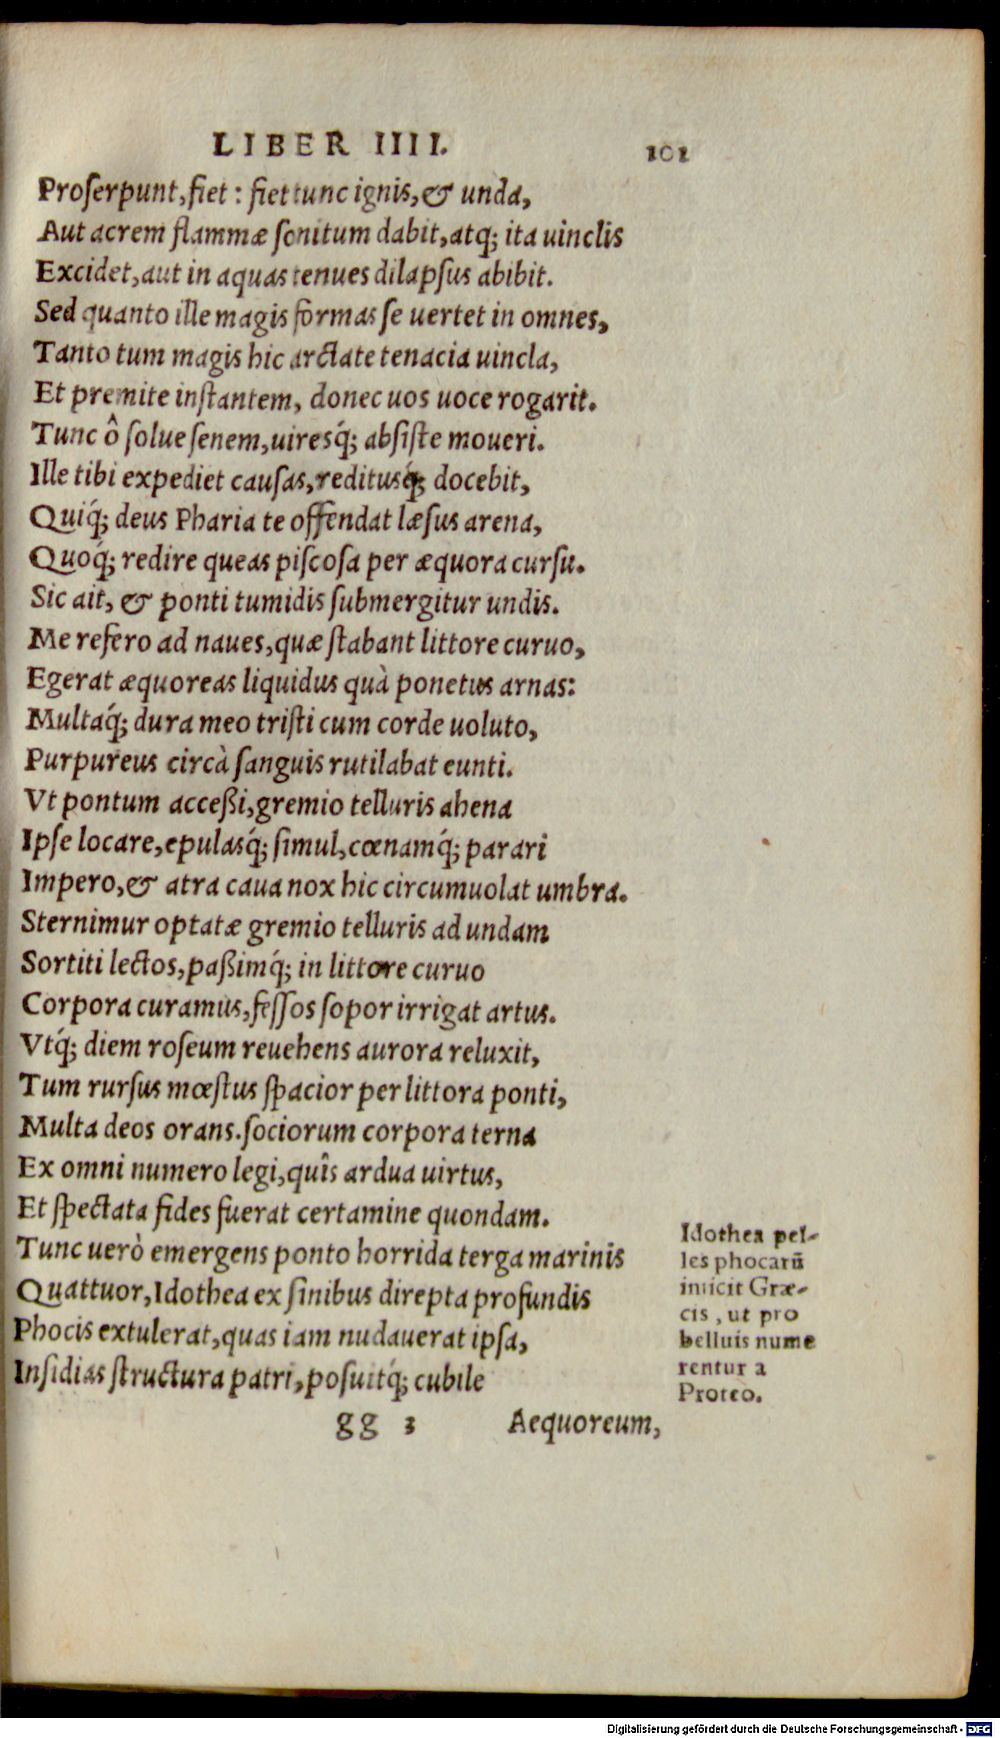 LIBER IIII. 101
Proſerpunt, fiet : fiet tunc ignis, & unda,
Aut acrem flammæ ſonitum dabit, atq́; ita uinclis
Excidet, aut in aquas tenues dilapſus abibit.
Sed quanto ille magis formas ſe uertet in omnes,
Tanto tum magis hic arctate tenacia uincla,
Et premite inſtantem, donec uos uoce rogarit.
Tunc ô ſolue ſenem, uiresq́; abſiſte moueri.
Ille tibi expediet cauſas, reditusq́; docebit,
Quiq́; deus Pharia te offendat læſus arena,
Quoq́; redire queas piſcoſa per æquora curſu.
Sic ait, & ponti tumidis ſubmergitur undis.
Me refero ad naues, quæ ſtabant littore curuo,
Egerat æquoreas liquidus quà ponetus arnas:
Multaq́; dura meo triſti cum corde uoluto,
Purpureus circà ſanguis rutilabat eunti.
Vt pontum acceßi, gremio telluris ahena
Ipſe locare, epulasq́; ſimul, cœnamq́; parari
Impero, & atra caua nox hic circumuolat umbra.
Sternimur optatæ gremio telluris ad undam
Sortiti lectos, paßimq́; in littore curuo
Corpora curamus, feſſos ſopor irrigat artus.
Vtq́; diem roſeum reuehens aurora reluxit,
Tum rurſus mœſtus ſpacior per littora ponti,
Multa deos orans. ſociorum corpora terna
Ex omni numero legi, quîs ardua uirtus,
Et ſpectata fides fuerat certamine quondam.
Tunc uerò emergens ponto horrida terga marinis
Quattuor, Idothea ex ſinibus direpta profundis
Phocis extulerat, quas iam nudauerat ipſa,
Inſidias ſtructura patri, poſuitq́; cubile
Idothea pel-
les phocarũ
iniicit Græ-
cis, ut pro
belluis nume
rentur a
Proteo.
gg 3 Aequoreum,
Digitalisierung gefördert durch die Deutsche Forschungsgemeinschaft - DFG